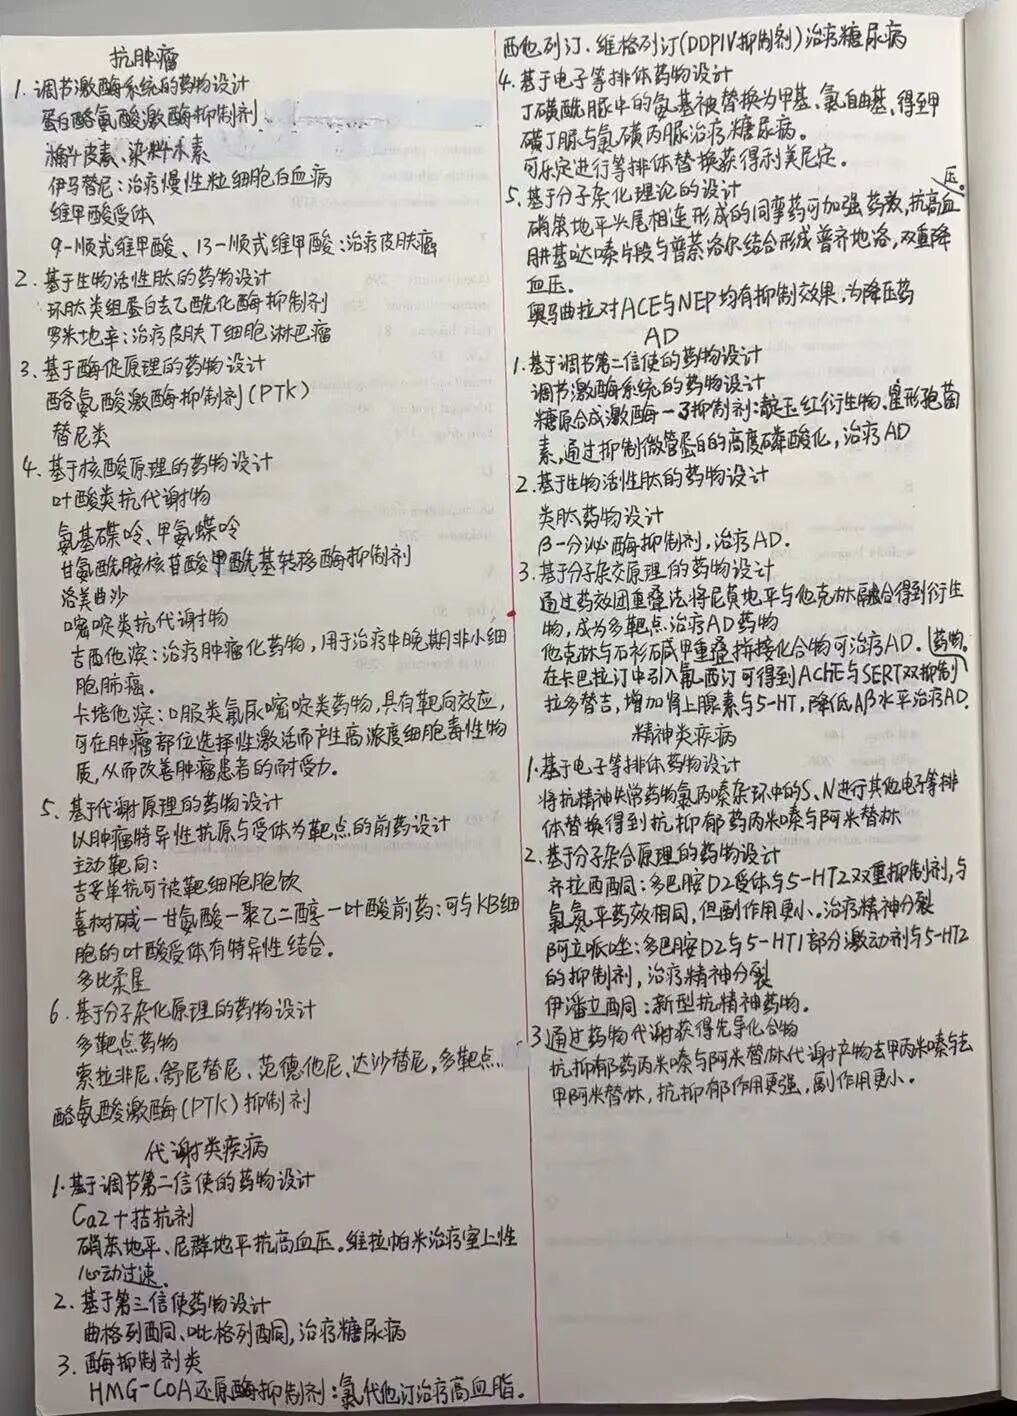 抗肿瘤
1. 调节激酶系统的药物设计
蛋白酪氨酸激酶抑制剂
槲皮素、染料木素
伊马替尼：治疗慢性粒细胞白血病
维甲酸受体
9-顺式维甲酸、13-顺式维甲酸：治疗皮肤癌
2. 基于生物活性肽的药物设计
环肽类组蛋白去乙酰化酶抑制剂
罗米地辛：治疗皮肤T细胞淋巴瘤
3. 基于酶促原理的药物设计
酪氨酸激酶抑制剂(PTK)
替尼类
4. 基于核酸原理的药物设计
叶酸类抗代谢物
氨基碟呤、甲氨蝶呤
甘氨酰胺核苷酸甲酰基转移酶抑制剂
洛美曲沙
嘧啶类抗代谢物
吉西他滨：治疗肿瘤化药物，用于治疗中晚期非小细
胞肺癌。
卡培他滨：口服类氟尿嘧啶类药物，具有靶向效应，
可在肿瘤部位选择性激活而产生高浓度细胞毒性物
质，从而改善肿瘤患者的耐受力。
5. 基于代谢原理的药物设计
以肿瘤特异性抗原与受体为靶点的前药设计
主动靶向：
吉妥单抗可被靶细胞胞饮
喜树碱-甘氨酸-聚乙二醇-叶酸前药：可与KB细
胞的叶酸受体有特异性结合。
多比柔星
6. 基于分子杂化原理的药物设计
多靶点药物
索拉非尼、舒尼替尼、范德他尼、达沙替尼，多靶点
酪氨酸激酶(PTK)抑制剂
代谢类疾病
1. 基于调节第二信使的药物设计
Ca2+拮抗剂
硝苯地平、尼群地平抗高血压。维拉帕米治疗室上性
心动过速。
2. 基于第三信使药物设计
曲格列酮、吡格列酮，治疗糖尿病
3. 酶抑制剂类
HMG-COA还原酶抑制剂：氯代他汀治疗高血脂。
西他列汀、维格列汀(DDPIV抑制剂)治疗糖尿病
4. 基于电子等排体药物设计
丁磺酰脲中的氨基被替换为甲基、氯自由基、得到甲
磺丁脲与氯磺丙脲治疗糖尿病。
可乐定进行等排体替换获得利美尼定。
5. 基于分子杂化理论的设计
硝苯地平头尾相连形成的同孪药可加强药效，抗高血压。
肼基哒嗪片段与普萘洛尔结合形成普齐地洛，双重降
血压。
奥马曲拉对ACE与NEP均有抑制效果，为降压药
AD
1. 基于调节第二信使的药物设计
调节激酶系统的药物设计
糖原合成激酶-3抑制剂：靛玉红衍生物、星形孢菌
素，通过抑制微管蛋白的高度磷酸化，治疗AD
2. 基于生物活性肽的药物设计
类肽药物设计
β-分泌酶抑制剂，治疗AD。
3. 基于分子杂交原理的药物设计
通过药效团重叠法将尼莫地平与他克林融合得到衍生
物，成为多靶点治疗AD药物
他克林与石杉碱甲重叠拼接化合物可治疗AD。
在卡巴拉汀中引入氟西汀可得到AChE与SERT双抑制药物。
拉多替吉，增加肾上腺素与5-HT，降低Aβ水平治疗AD。
精神类疾病
1. 基于电子等排体药物设计
将抗精神失常药物氯丙嗪杂环中的S、N进行其他电子等排
体替换得到抗抑郁药丙米嗪与阿米替林
2. 基于分子杂合原理的药物设计
齐拉西酮：多巴胺D2受体与5-HT2双重抑制剂，与
氯氮平药效相同，但副作用更小。治疗精神分裂
阿立哌唑：多巴胺D2与5-HT1部分激动剂与5-HT2
的抑制剂，治疗精神分裂
伊潘立酮：新型抗精神药物。
3 通过药物代谢获得先导化合物
抗抑郁药丙米嗪与阿米替林代谢产物去甲丙米嗪与去
甲阿米替林，抗抑郁作用更强，副作用更小。